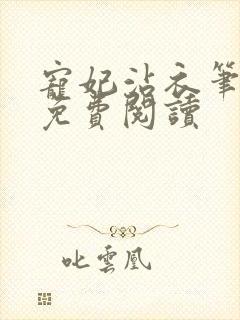 寵妃沾衣筆
免費閱讀
叱雲凰